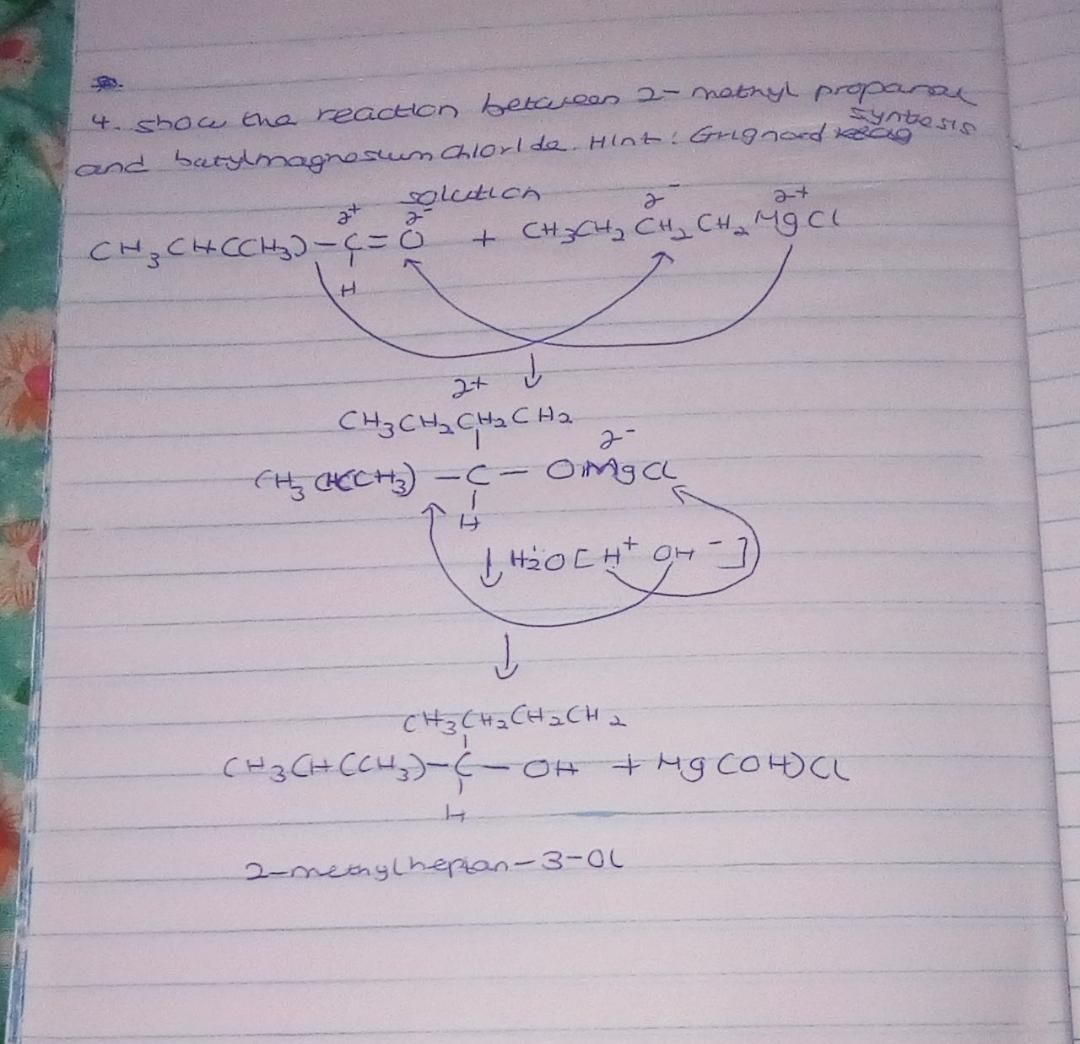 4. show the reaction between 2-methyl propanal
synthesis
and butylmagnesium chloride. Hint: Grignard
solution
2+ 2- 2- 2+
CH3CH(CH3)-C=O + CH3CH2CH2CH2MgCl
H
↓
2+
CH3CH2CH2CH2
2-
CH3CH(CH3)-C-OMgCl
H
↓ H2O[H+ OH-]
↓
CH3CH2CH2CH2
CH3CH(CH3)-C-OH + Mg(OH)Cl
H
2-methylheptan-3-Ol